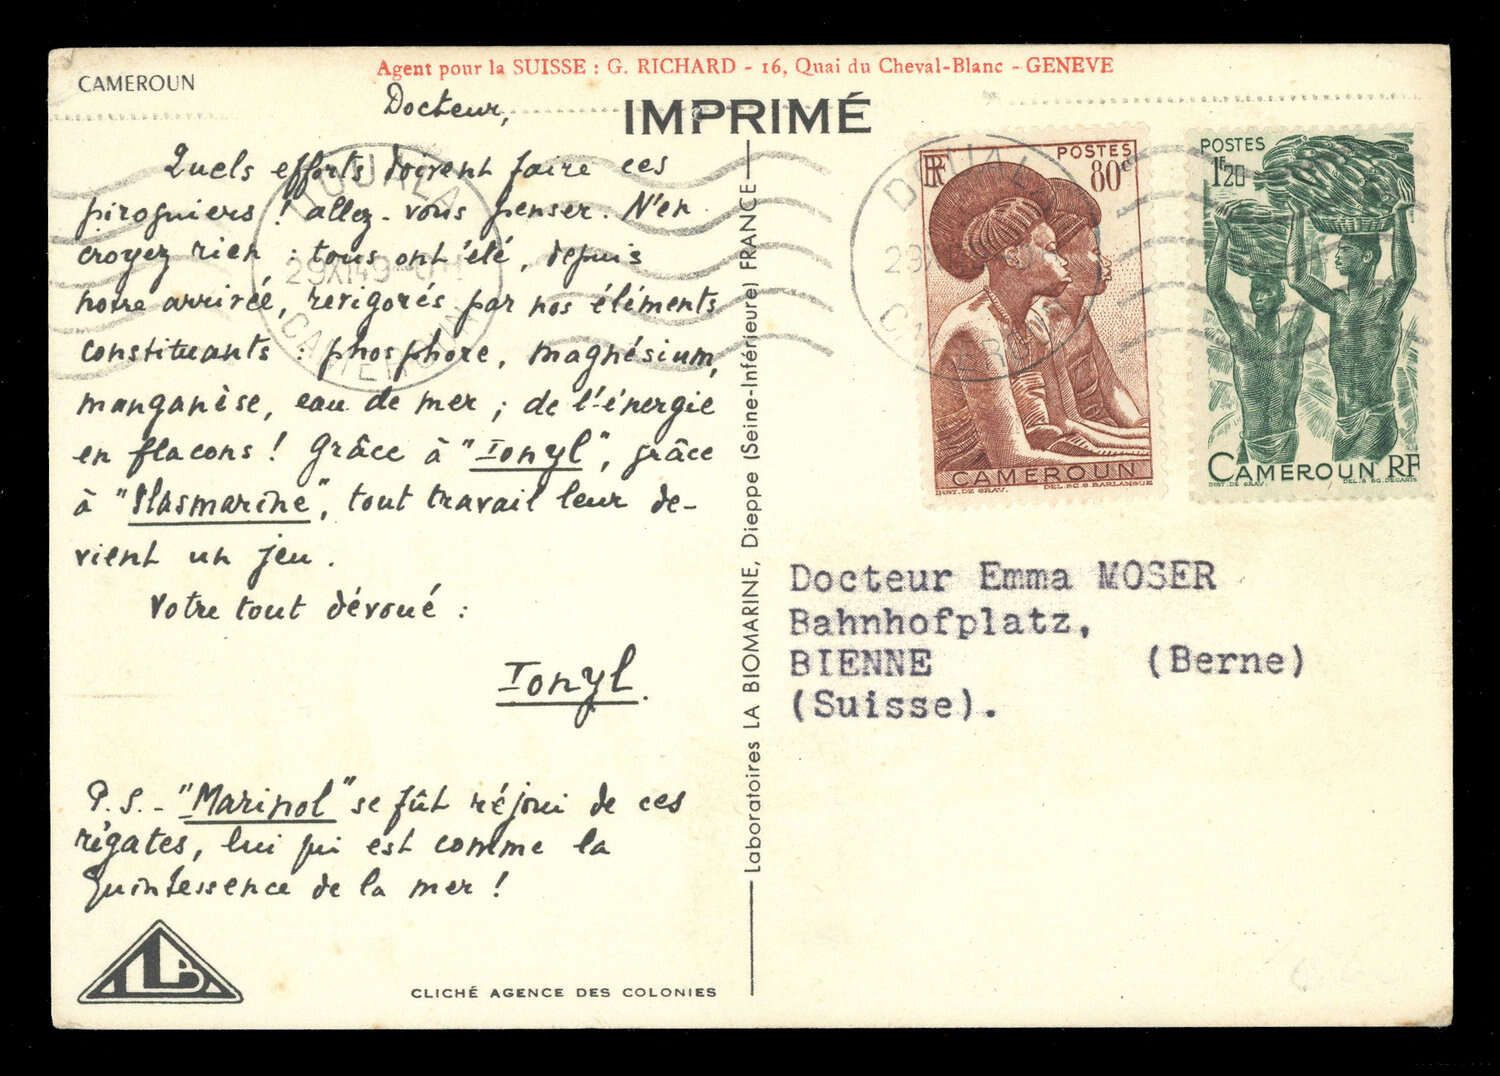 Agent pour la SUISSE : G. RICHARD - 16, Quai du Cheval-Blanc - GENEVE
CAMEROUN
IMPRIMÉ
Docteur,
Quels efforts doivent faire ces
piroguiers ! allez-vous penser. N'en
croyez rien : tous ont été, depuis
notre arrivée, revigorés par nos éléments
constituants : phosphore, magnésium,
manganèse, eau de mer ; de l'énergie
en flacons ! Grâce à "Ionyl", grâce
à "Plasmarine", tout travail leur de-
vient un jeu.
Votre tout dévoué :
Ionyl.
P.S. - "Marinol" se fût réjoui de ces
régates, lui qui est comme la
quintessence de la mer !
LB
CLICHÉ AGENCE DES COLONIES
Laboratoires LA BIOMARINE, Dieppe (Seine-Inférieure) FRANCE
DOUALA
29 XI 49
CAMEROUN
DOUALA
29
CAMEROUN
RF
POSTES
80c
CAMEROUN
INST. DE GRAV. DEL. & SC. G. BARLANGUE
POSTES
1F20
CAMEROUN RF
INST. DE GRAV. DEL. & SC. DECARIS
Docteur Emma MOSER
Bahnhofplatz,
BIENNE (Berne)
(Suisse).